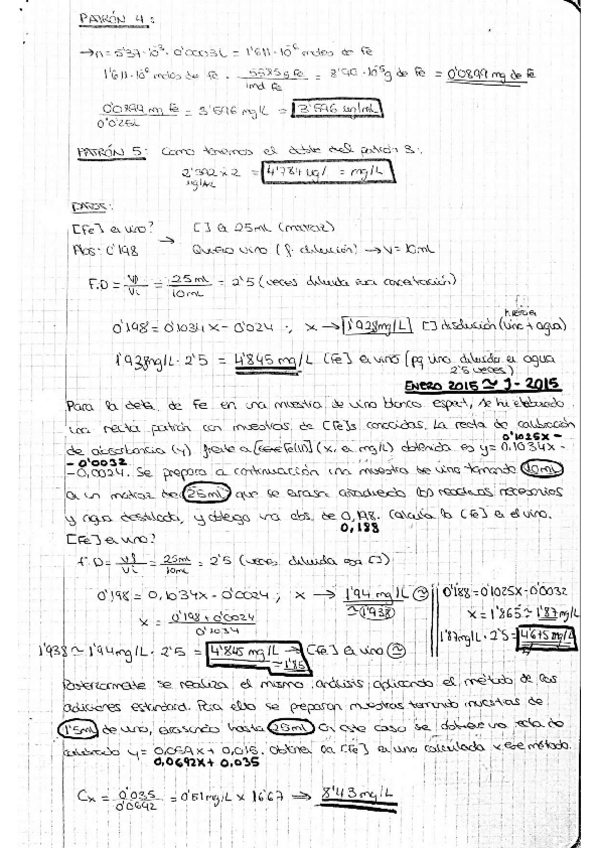 PATRÓN 4:
→n = 5'37·10³·0'0003L = 1'611·10⁶ moles de Fe
1'611·10⁶ moles de Fe · 55'85g Fe / 1mol Fe = 8'90·10⁵g de Fe = 0'0899 mg de Fe
0'0899 mg Fe / 0'025L = 3'596 mg/L = 3'596 ug/mL
PATRÓN 5: Como tenemos el doble del patrón 3:
2'392 x 2 = 4'784 ug/ = mg/L
ug/mL
DATOS:
[Fe] en vino? → [] en 25mL (matraz)
Abs: 0'198 Quiero vino (f. dilución) → V = 10mL
F.D = Vf/Vi = 25mL/10mL = 2'5 (veces diluida esa concentración)
0'198 = 0'1034x - 0'024 ; x → 1'938mg/L [] disolución (vino + agua)
1'938mg/L · 2'5 = 4'845 mg/L [Fe] en vino (pq vino diluida en agua
2'5 veces)
ENERO 2015 ≃ J - 2015
Para la deter. de Fe en una muestra de vino blanco españ, se ha elaborado
una recta patrón con muestras de [Fe]s conocidas. La recta de calibración
0'1025x -
de absorbancia (y) frente a [Fe(II)] (x, en mg/L) obtenida es y = 0,1034x -
- 0'0032
- 0,0024. Se prepara a continuación una muestra de vino tomando 10mL
a un matraz de 25mL que se enrasa añadiendo los reactivos necesarios
y agua destilada, y obtengo una abs. de 0,198. Calcula la [Fe] en el vino.
0,188
[Fe] en vino?
F.D = Vf/Vi = 25mL/10mL = 2'5 (veces diluida esa [])
0'198 = 0,1034x - 0'0024 ; x → 1'94 mg/L
≃ 1'938
x = 0'198 + 0'0024 / 0'1034
0'188 = 0'1025x - 0'0032
x = 1'865 ≃ 1'87mg/L
1'87mg/L · 2'5 = 4'675 mg/L
1'938 ≃ 1'94mg/L · 2'5 = 4'845 mg/L → [Fe] en vino
≃ 4'85
Posteriormente se realiza el mismo análisis aplicando el método de las
adiciones estándard. Para ello se preparan muestras tomando muestras de
1'5mL de vino, enrasando hasta 25mL. En este caso se obtiene una recta de
calibrado y = 0,0659x + 0,016. Obtener la [Fe] en vino calculada x ese método.
0,0692x + 0.035
Cx = 0'035 / 0'0692 = 0'51mg/L x 16'67 → 8'43mg/L